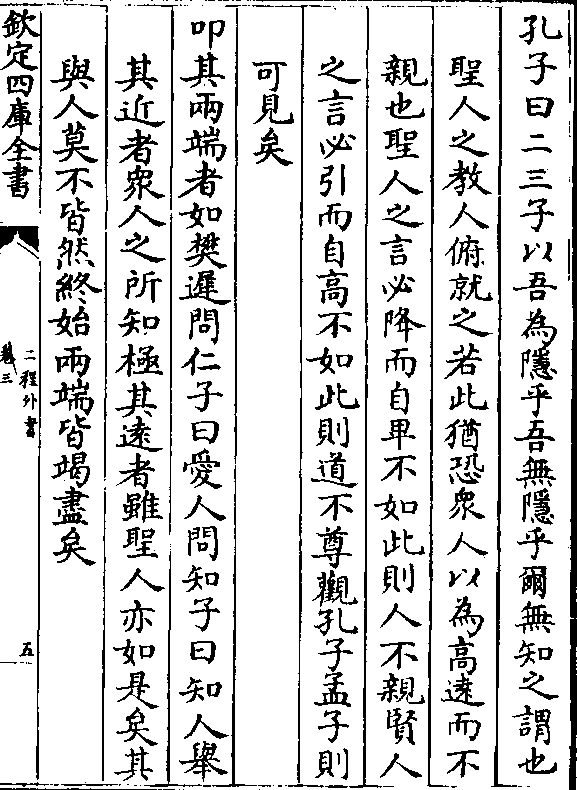 孔子曰二三子以吾為隱乎吾無隱乎爾無知之謂也
聖人之教人俯就之若此猶恐衆人以為高逺而不
親也聖人之言必降而自卑不如此則人不親賢人
之言必引而自高不如此則道不尊觀孔子孟子則
可見矣
叩其兩端者如樊遲問仁子曰愛人問知子曰知人舉
其近者衆人之所知極其逺者雖聖人亦如是矣其
與人莫不皆然終始兩端皆竭盡矣
欽定四庫全書
二程外書
卷三
五